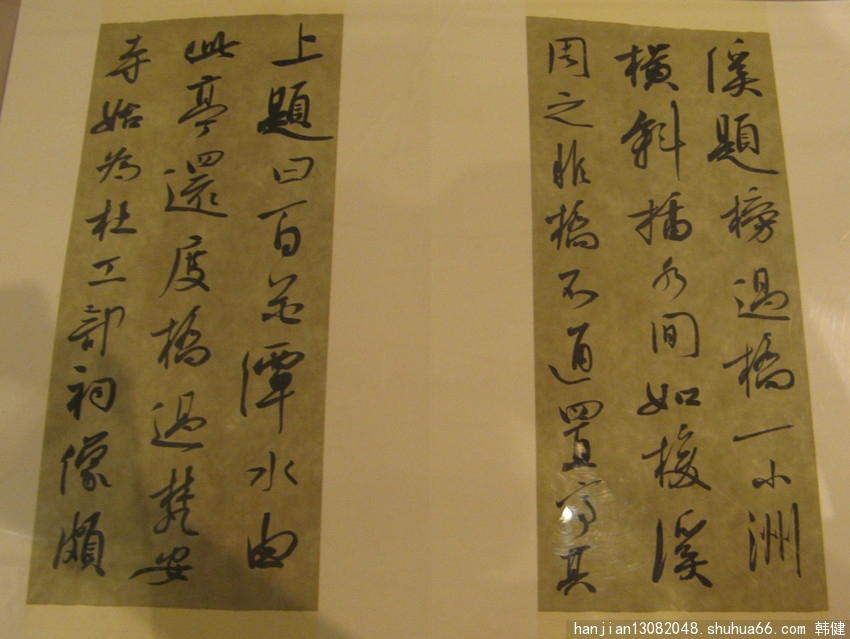 溪題榜過橋一小洲
橫斜插水間如梭溪
周之非橋不通置亭其
上題曰百花潭水由
此亭還度橋過梵安
寺始為杜工部祠像頗
hanjian13082048.shuhua66.com 韩健